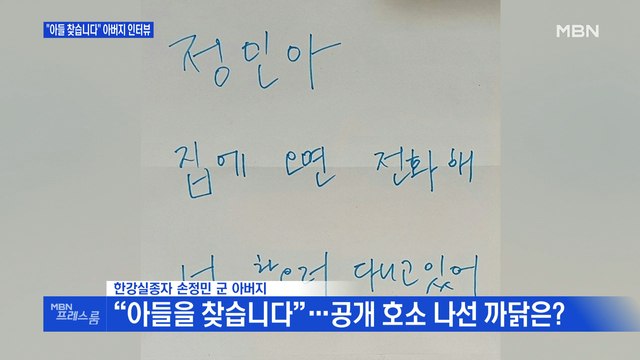 "아들 찾습니다" 아버지 인터뷰
MBN
정민아
집에 오면 전화해
너 찾으러 다니고 있어
한강실종자 손정민 군 아버지
MBN
프레스룸
“아들을 찾습니다”…공개 호소 나선 까닭은?